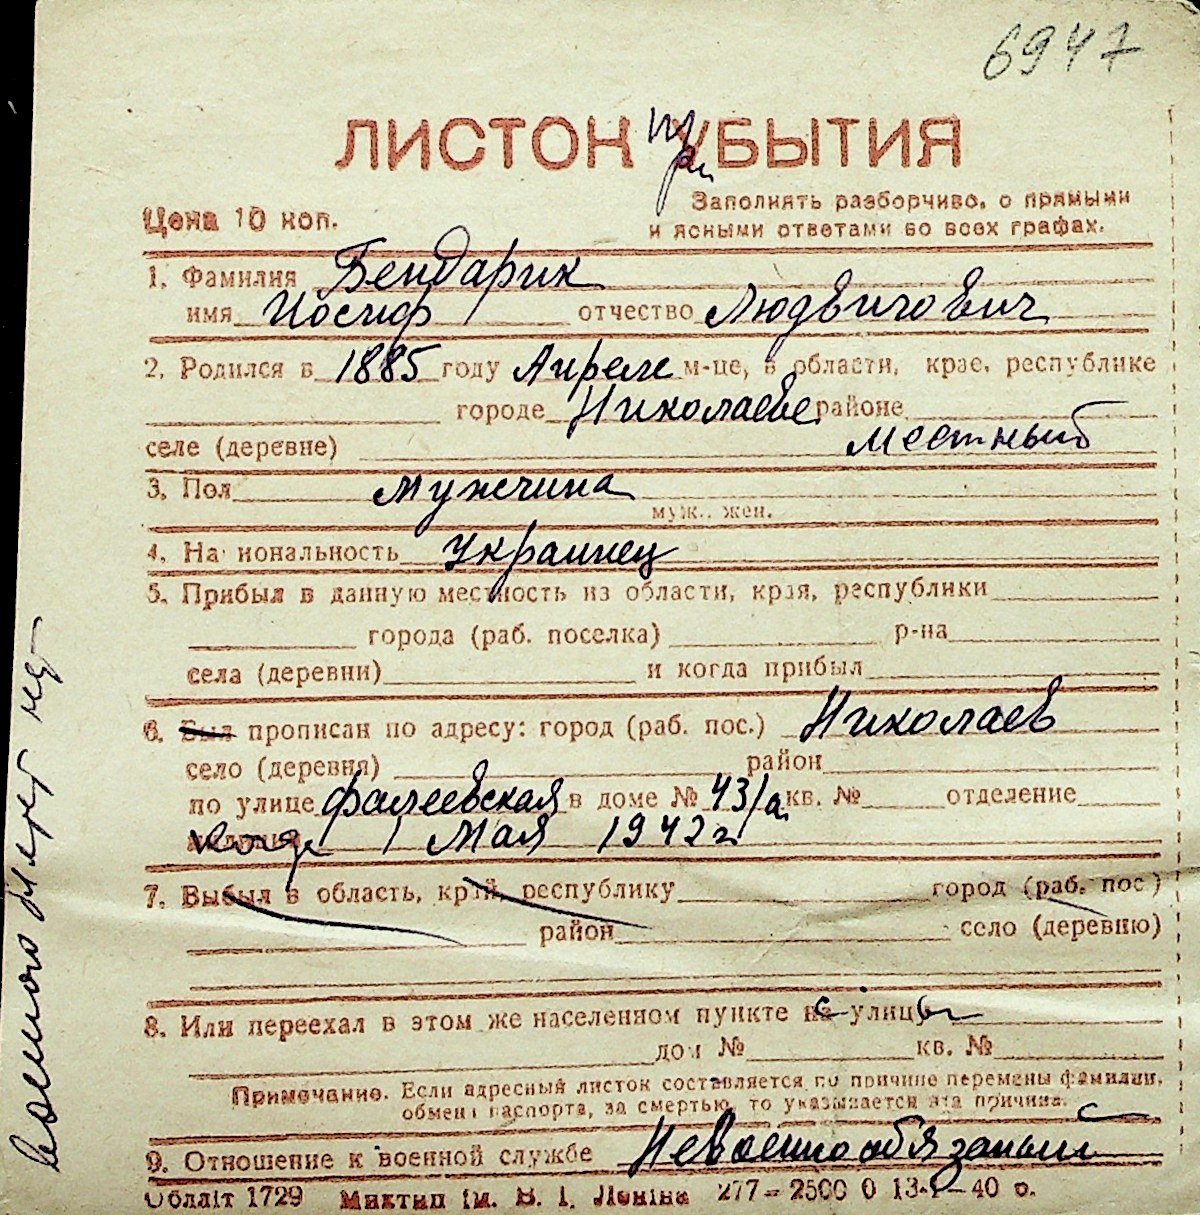 6947
ЛИСТОК при УБЫТИЯ
Цена 10 коп.
Заполнять разборчиво, с прямыми
и ясными ответами во всех графах.
1. Фамилия Бендарик
имя Иосиф отчество Людвигович
2. Родился в 1885 году Апреле м-це, в области, крае, республике
городе Николаеве районе
селе (деревне) местный
3. Пол мужчина
муж., жен.
4. На иональность Украинец
5. Прибыл в данную местность из области, края, республики
города (раб. поселка) р-на
села (деревни) и когда прибыл
6. Был прописан по адресу: город (раб. пос.) Николаев
село (деревня) район
по улице Фалеевская в доме № 43/а кв. № отделение
1 Мая 1942 г
7. Выбыл в область, край, республику город (раб. пос.)
район село (деревню)
8. Или переехал в этом же населенном пункте с улицы
дом № кв. №
Примечание. Если адресный листок составляется по причине перемены фамилии,
обмена паспорта, за смертью, то указывается эта причина.
9. Отношение к военной службе Невоеннообязаный
Обляіт 1729 Миктип ім. В. І. Леніна 277–2500 0 13-І–40 р.